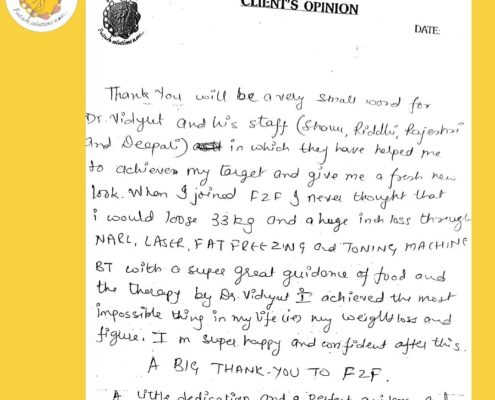 CLIENT'S OPINION
DATE:
Thank You will be a very small word for
Dr. Vidyut and his staff (Shonu, Riddhi, Rajeshri
and Deepali) in which they have helped me
to achieve my target and give me a fresh new
look. When I joined F2F I never thought that
i would loose 33kg and a huge inch loss through
NARL, LASER, FAT FREEZING and TONING MACHINE
BT with a super great guidance of food and
the therapy by Dr. Vidyut I achieved the most
impossible thing in my life (ie) my weight loss and
figure. I m super happy and confident after this.
A BIG THANK-YOU TO F2F.
A little dedication and a perfect